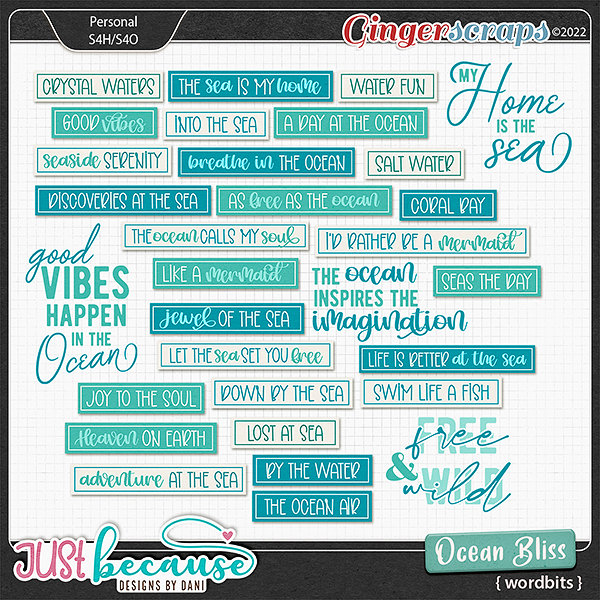 Personal
S4H/S4O
Gingerscraps ©2022
CRYSTAL WATERS
THE sea IS MY home
WATER FUN
MY
Home
IS THE
sea
GOOD vibes
INTO THE SEA
A DAY AT THE OCEAN
seaside SERENITY
breathe in THE OCEAN
SALT WATER
DISCOVERIES AT THE SEA
AS free AS THE ocean
CORAL BAY
THE ocean CALLS MY soul
I'D RATHER BE A mermaid
good
VIBES
HAPPEN
IN THE
Ocean
LIKE A mermaid
THE ocean
INSPIRES THE
imagination
SEAS THE DAY
jewel OF THE SEA
LET THE sea SET YOU free
LIFE IS BETTER at the sea
JOY TO THE SOUL
DOWN BY THE SEA
SWIM LIFE A FISH
Heaven ON EARTH
LOST AT SEA
FREE
free
&
WILD
wild
adventure AT THE SEA
BY THE WATER
THE OCEAN AIR
JUST because
DESIGNS BY DANI
Ocean Bliss
{ wordbits }